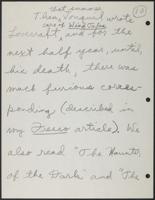 that summer 12
T. Henry Vonquist wrote
care of Weird Tales
Lovecraft, and for the
next half year, until
his death, there was
much furious corres-
ponding (described in
my Fresco article). We
also read "The Haunter
of the Dark" and "The